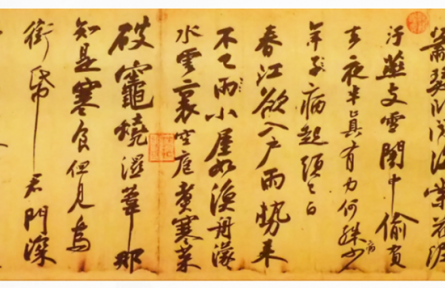 蕭瑟臥聞海棠花泥
汙燕支雪闇中偷負
去夜半真有力何殊病少
年子病起頭已白
春江欲入戶雨勢來
不已雨小屋如漁舟濛
水雲裏空庖煮寒菜
破竈燒濕葦那
知是寒食但見烏
銜帋君門深